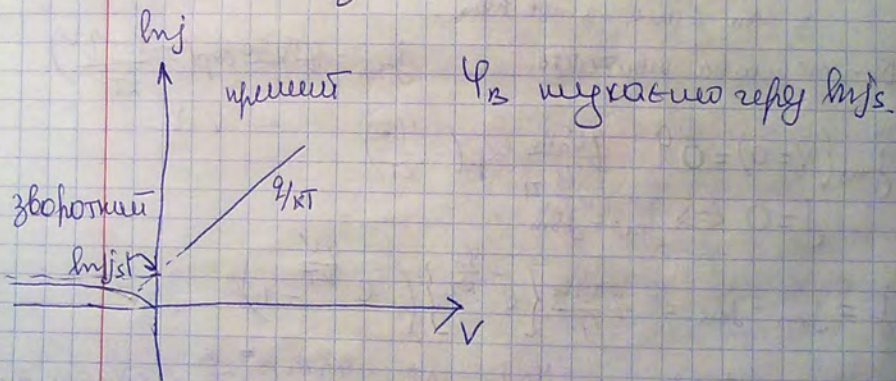 ln j
прямий
φ_B шукаємо через ln j_s.
q/кТ
зворотний
ln j_s
V